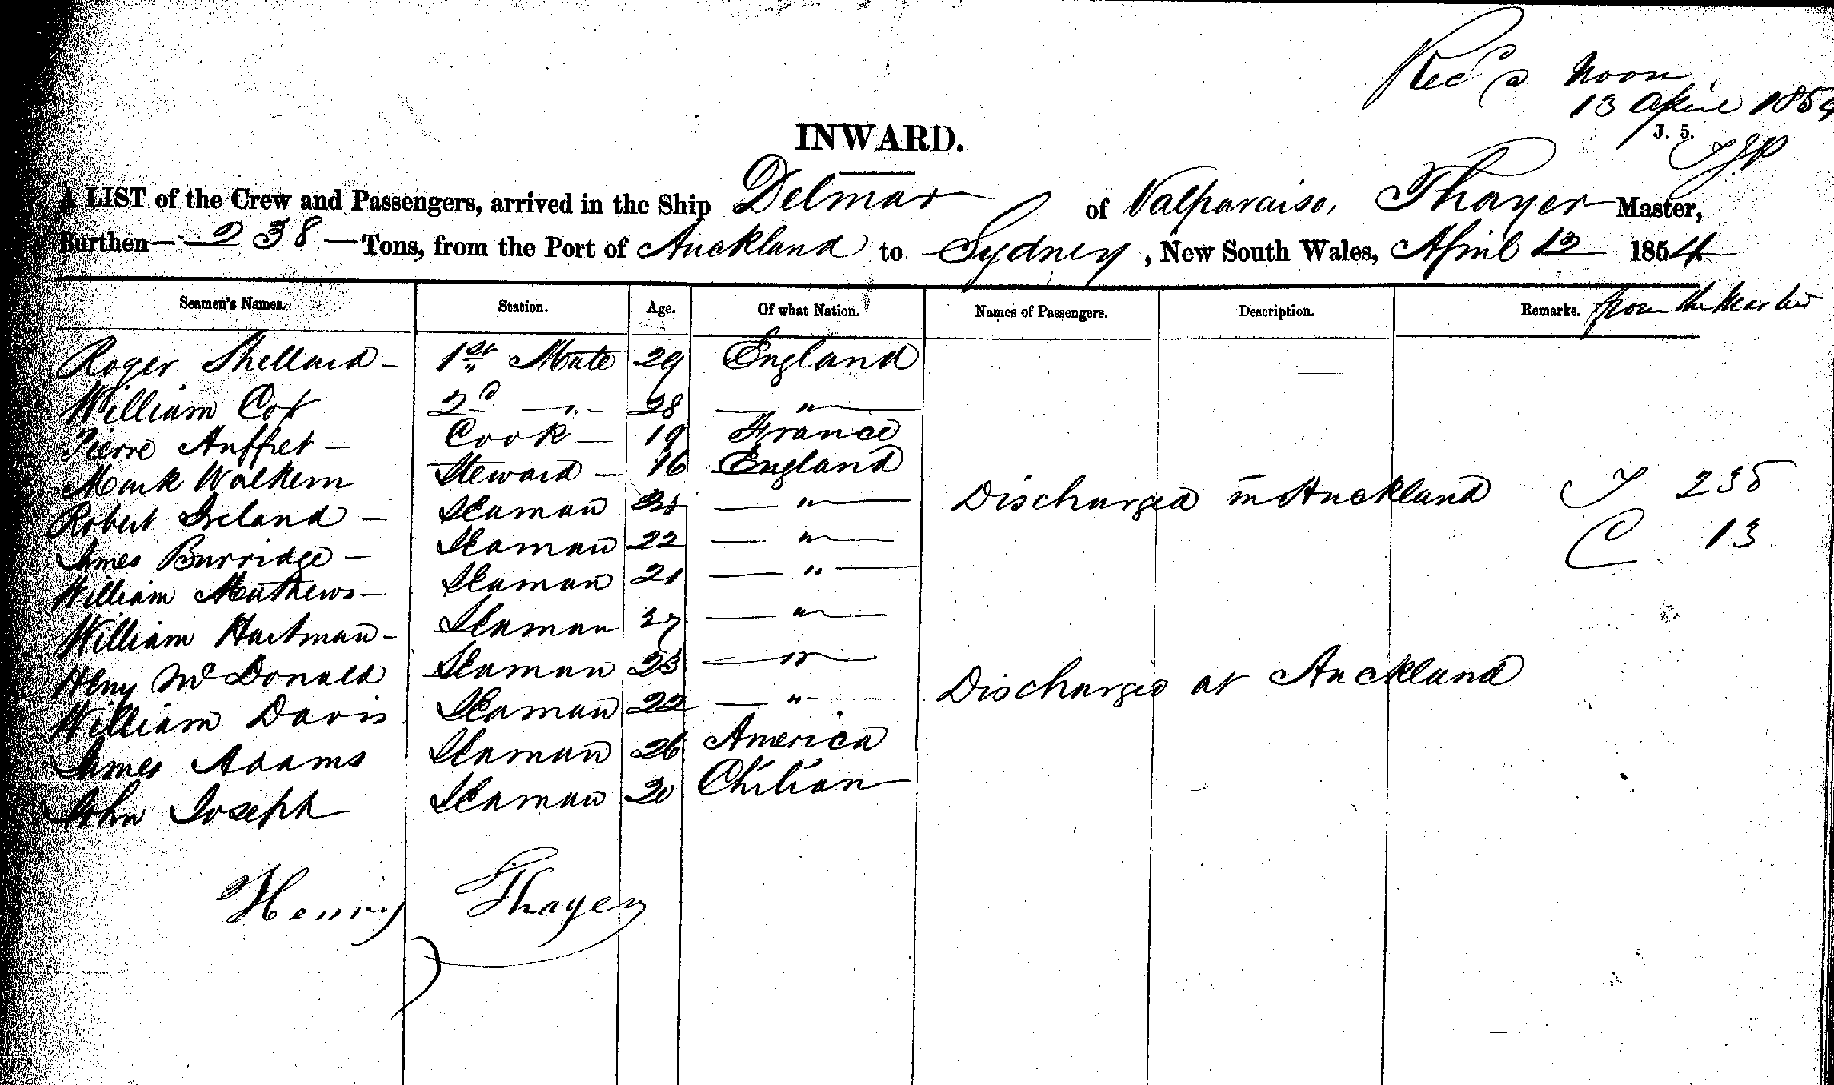 Rec'd Noon
13 April 1854
J. 5.
INWARD.
A LIST of the Crew and Passengers, arrived in the Ship Delmar of Valparaiso, Thayer Master,
Burthen 238 Tons, from the Port of Auckland to Sydney, New South Wales, April 12 1854
Seamen's Names. Station. Age. Of what Nation. Names of Passengers. Description. Remarks. from the Master
Roger Shellard 1st Mate 29 England
William Cox 2d " 28 "
Pierre Auffret Cook 19 France
Mark Walkem Steward 16 England
Robert Ireland Seaman " Discharged in Auckland T 235
James Burridge Seaman 22 " C 13
William Mathews Seaman 21 "
William Hartman Seaman 27 "
Heny McDonald Seaman 23 "
William Davis Seaman 22 " Discharged at Auckland
James Adams Seaman 26 America
John Joseph Seaman 20 Chilian
Henry Thayer